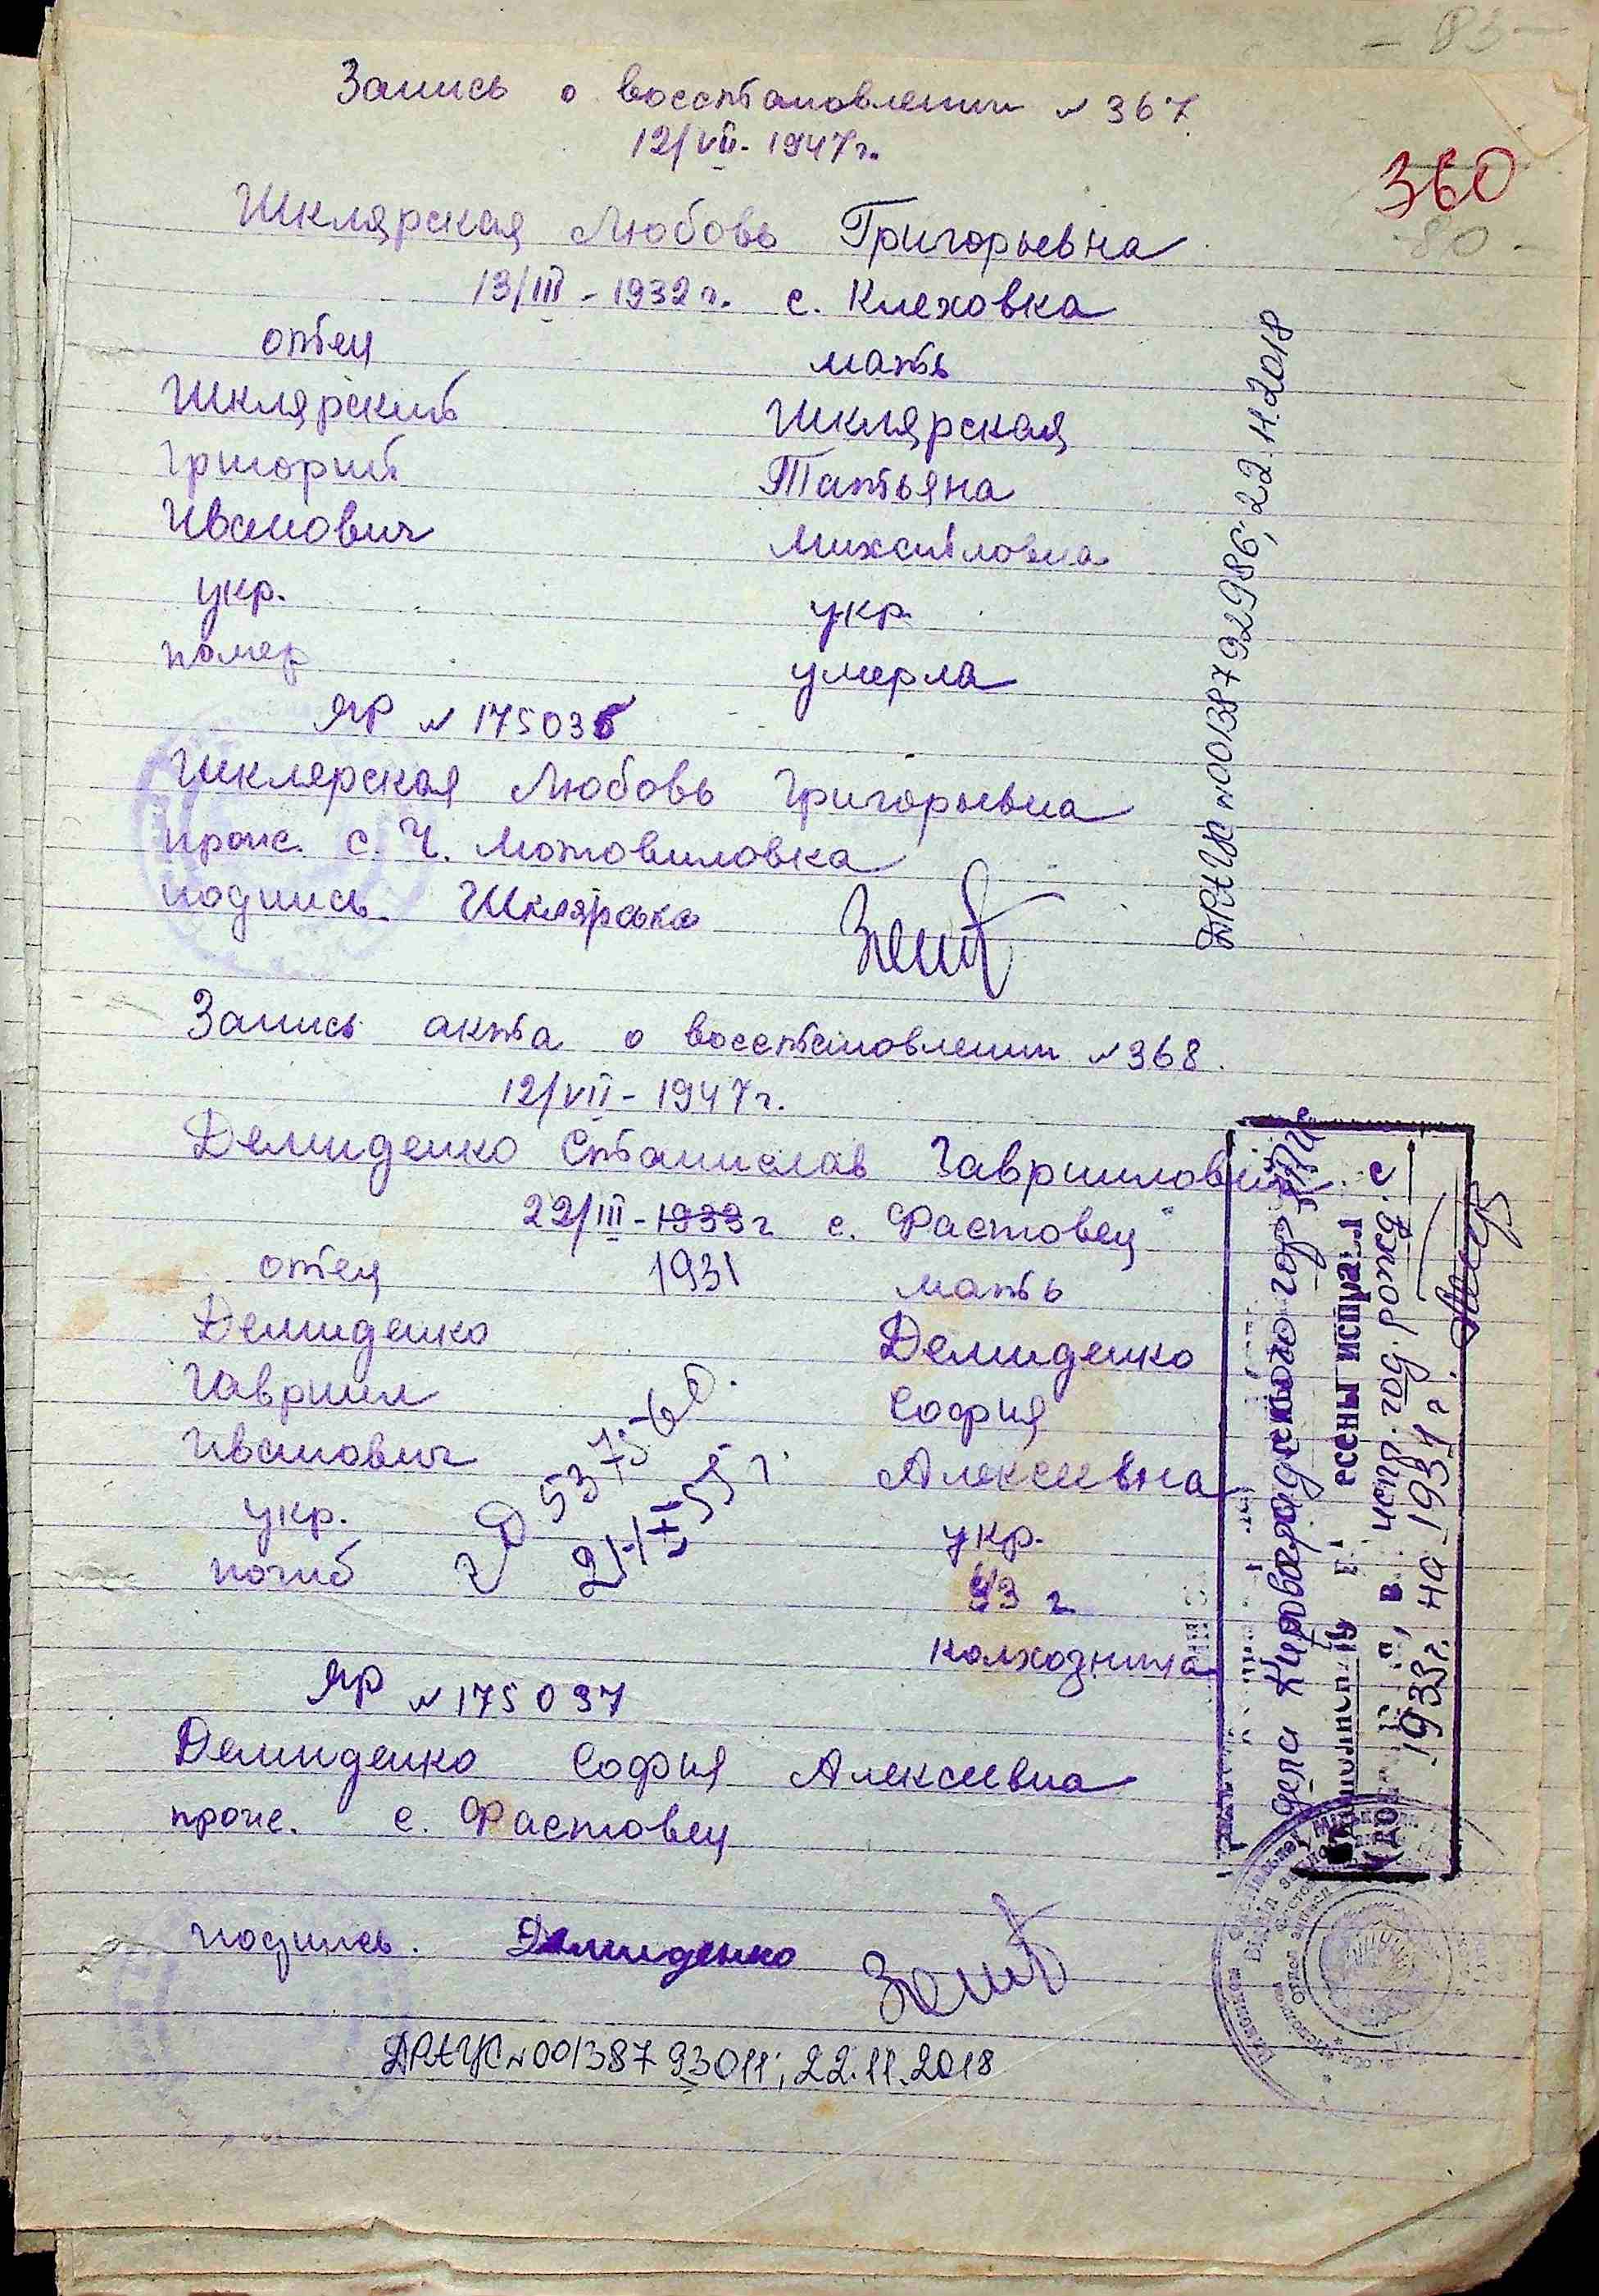 - 83 -
Запись о восстановлении № 367
12/VII - 1947 г.
360
80
Шклярская Любовь Григорьевна
13/III - 1932 г. с. Клеховка
отец мать
Шклярский Шклярская
Григорий Татьяна
Иванович Михайловна
укр. укр.
помер умерла
ЯР № 175036
Шклярская Любовь Григорьевна
прож. с. Ч. Мотовиловка
подпись Шклярська
ДРАЦС №00138792986; 22.11.2018
Запись акта о восстановлении № 368.
12/VII - 1947 г.
Демиденко Станислав Гавриилович
22/III - 1933 г с. Фастовец
1931
отец мать
Демиденко Демиденко
Гавриил София
Иванович Алексеевна
укр. укр.
погиб 43 г.
колхозница
53 75-60.
21-IX 55 г.
ЯР № 175037
Демиденко София Алексеевна
прож. с. Фастовец
подпись. Демиденко
ДРАЦС №00138793011; 22.11.2018
дела Кировоградского гор ЗАГС
есены исправл
испр. год рожд. с
1933 г. на 1931 г.